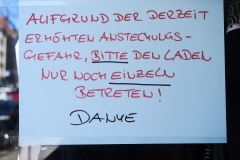 AUFGRUND DER DERZEIT
ERHÖHTEN ANSTECKUNGS-
GEFAHR, BITTE DEN LADEN
NUR NOCH EINZELN
BETRETEN!
DANKE